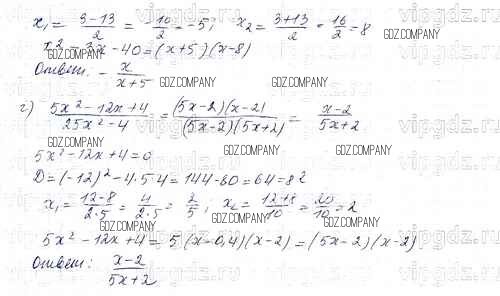 x₁ = (3-13)/2 = -10/2 = -5; x₂ = (3+13)/2 = 16/2 = 8
x² - 3x - 40 = (x+5)(x-8)
Ответ: - x/(x+5)
г) (5x² - 12x + 4)/(25x² - 4) = (5x-2)(x-2)/((5x-2)(5x+2)) = (x-2)/(5x+2)
5x² - 12x + 4 = 0
D = (-12)² - 4·5·4 = 144 - 80 = 64 = 8²
x₁ = (12-8)/(2·5) = 4/(2·5) = 2/5; x₂ = (12+8)/10 = 20/10 = 2
5x² - 12x + 4 = 5(x-0,4)(x-2) = (5x-2)(x-2)
Ответ: (x-2)/(5x+2)